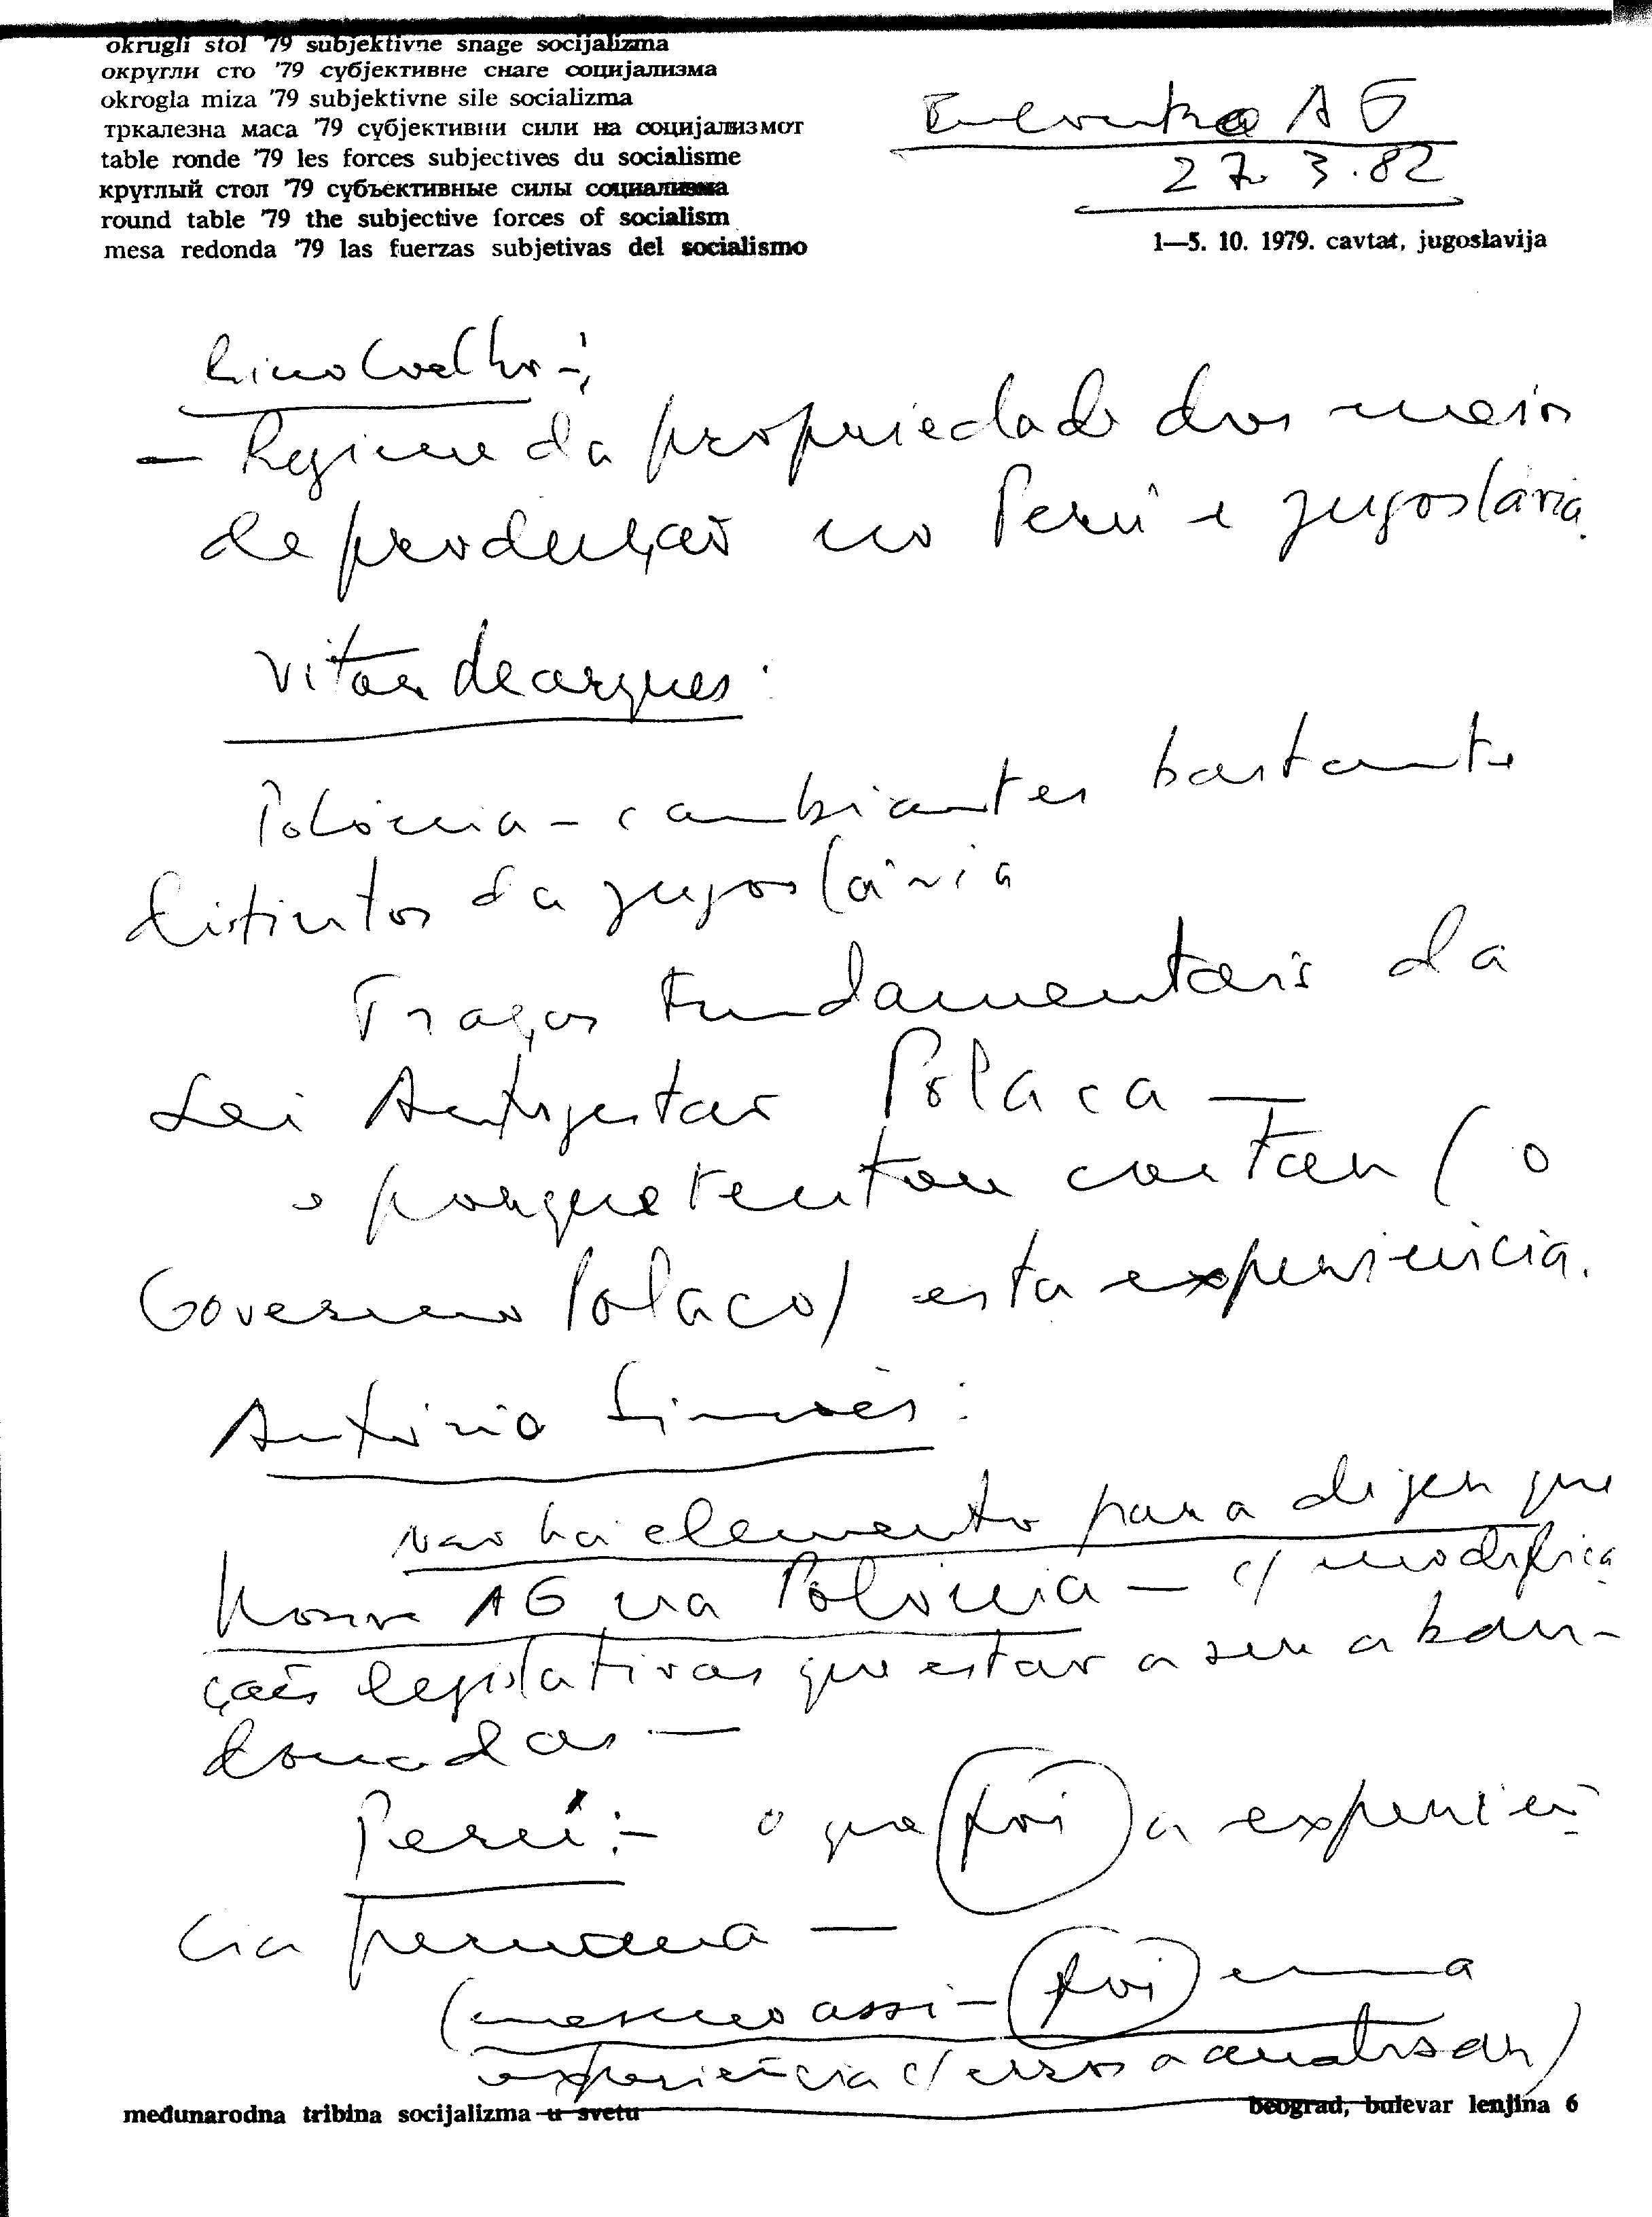 okrugli stol '79 subjektivne snage socijalizma
округли сто '79 субјективне снаге социјализма
okrogla miza '79 subjektivne sile socializma
тркалезна маса '79 субјективни сили на социјализмот
table ronde '79 les forces subjectives du socialisme
круглый стол '79 субъективные силы социализма
round table '79 the subjective forces of socialism
mesa redonda '79 las fuerzas subjetivas del socialismo
AG
27.3.82
1—5. 10. 1979. cavtat, jugoslavija
Coelho -;
- Regime da propriedade dos meios
de produção no Perú e Jugoslávia.
Vitor
Polónia - cambiantes bastante
distintos da Jugoslávia
Traços Fundamentais da
Lei Autogestão Polaca —
e porque tentou cortar (o
Governo Polaco) esta experiência.
António Simões:
Não há elemento para dizer que
houve AG na Polónia — c/ modifica
ções legislativas que estão a ser aban-
donadas —
Perú:- o que foi a experiên
cia peruana —
(mesmo assi- foi uma
experiência c/ erros a analisar)
međunarodna tribina socijalizma u svetu
beograd, bulevar lenjina 6